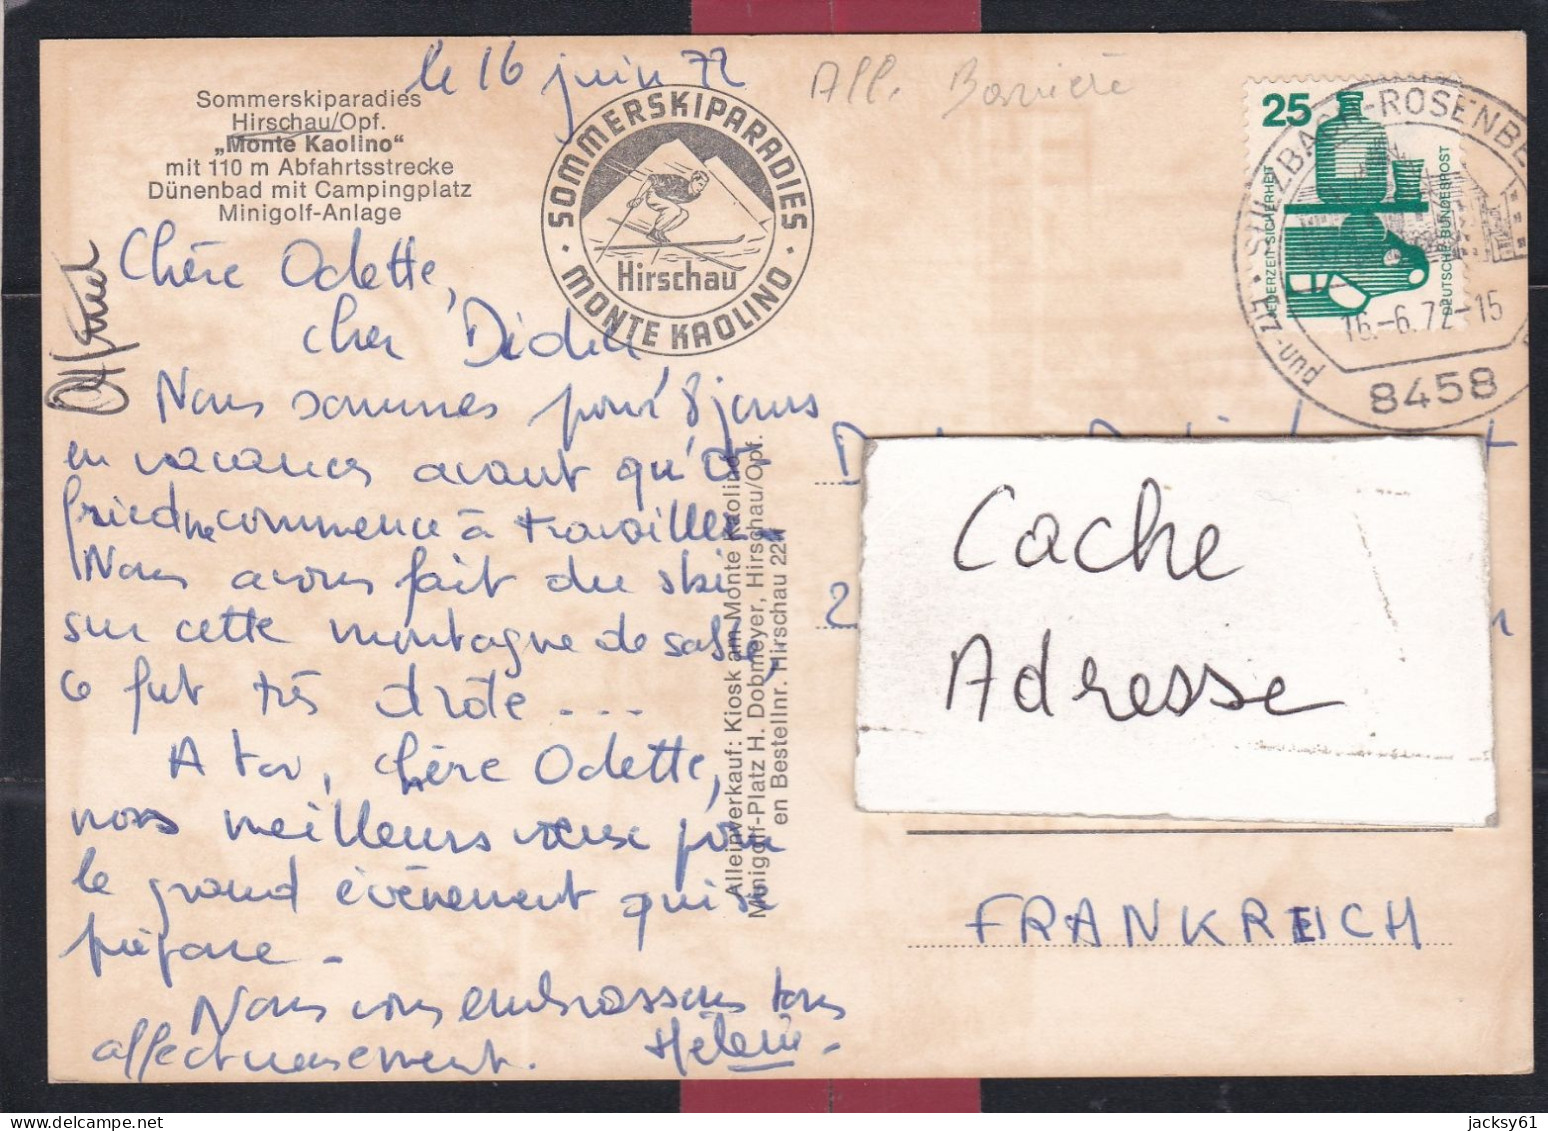 le 16 juin 72
All. Bavière
Sommerskiparadies
Hirschau/Opf.
„Monte Kaolino“
mit 110 m Abfahrtsstrecke
Dünenbad mit Campingplatz
Minigolf-Anlage
SOMMERSKIPARADIES
Hirschau
MONTE KAOLINO
25
JEDERZEIT SICHERHEIT
DEUTSCHE BUNDESPOST
SULZBACH-ROSENBE
16.-6.72-15
8458
Chère Odette,
cher Didier
Nous sommes pour 8 jours
en vacances avant qu'Ot-
fried ne commence à travailler.
Nous avons fait du ski
sur cette montagne de sable,
ce fut très drôle ...
A toi, chère Odette,
nos meilleurs voeux pour
le grand évènement qui se
prépare -
Nous vous embrassons tous
affectueusement. Hélène -
Otfried
Alleinverkauf: Kiosk am Monte Kaolino
Minigolf-Platz H. Dobmeyer, Hirschau/Opf.
en Bestellnr. Hirschau 22
Cache
Adresse
FRANKREICH
jacksy61